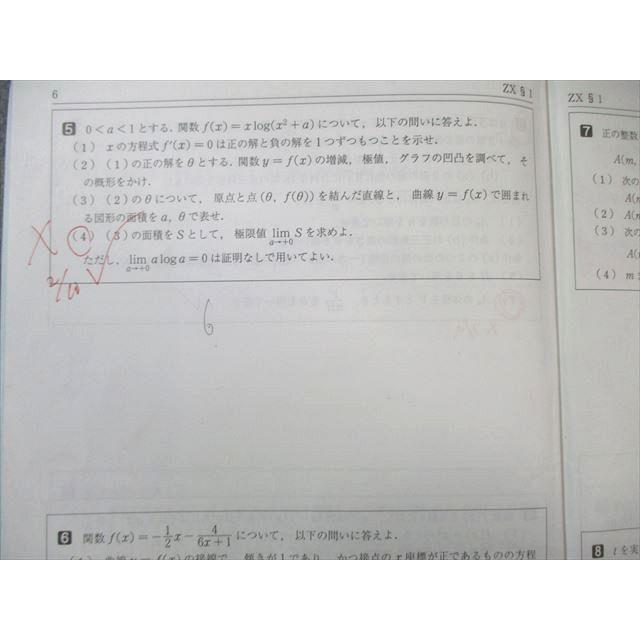 6
ZX § 1
5 0＜a＜1とする．関数 f(x)＝x log(x²＋a)について，以下の問いに答えよ．
(1) xの方程式 f′(x)＝0は正の解と負の解を1つずつもつことを示せ．
(2) (1)の正の解をθとする．関数 y＝f(x)の増減，極値，グラフの凹凸を調べて，そ
の概形をかけ．
(3) (2)のθについて，原点と点(θ, f(θ))を結んだ直線と，曲線 y＝f(x)で囲まれ
る図形の面積をa，θで表せ．
(4) (3)の面積をSとして，極限値 lim S を求めよ．
a→+0
ただし，lim a log a＝0は証明なしで用いてよい．
a→+0
6
6 関数 f(x)＝−1/2 x−4/(6x＋1) について，以下の問いに答えよ．
(1) 曲線 y＝f(x)の接線で，傾きが1であり，かつ接点のx座標が正であるものの方程
ZX § 1
7 正の整数
A(m,
(1) 次の
A(m
(2) A(m
(3) 次の
A(m
(4) m
8 tを実